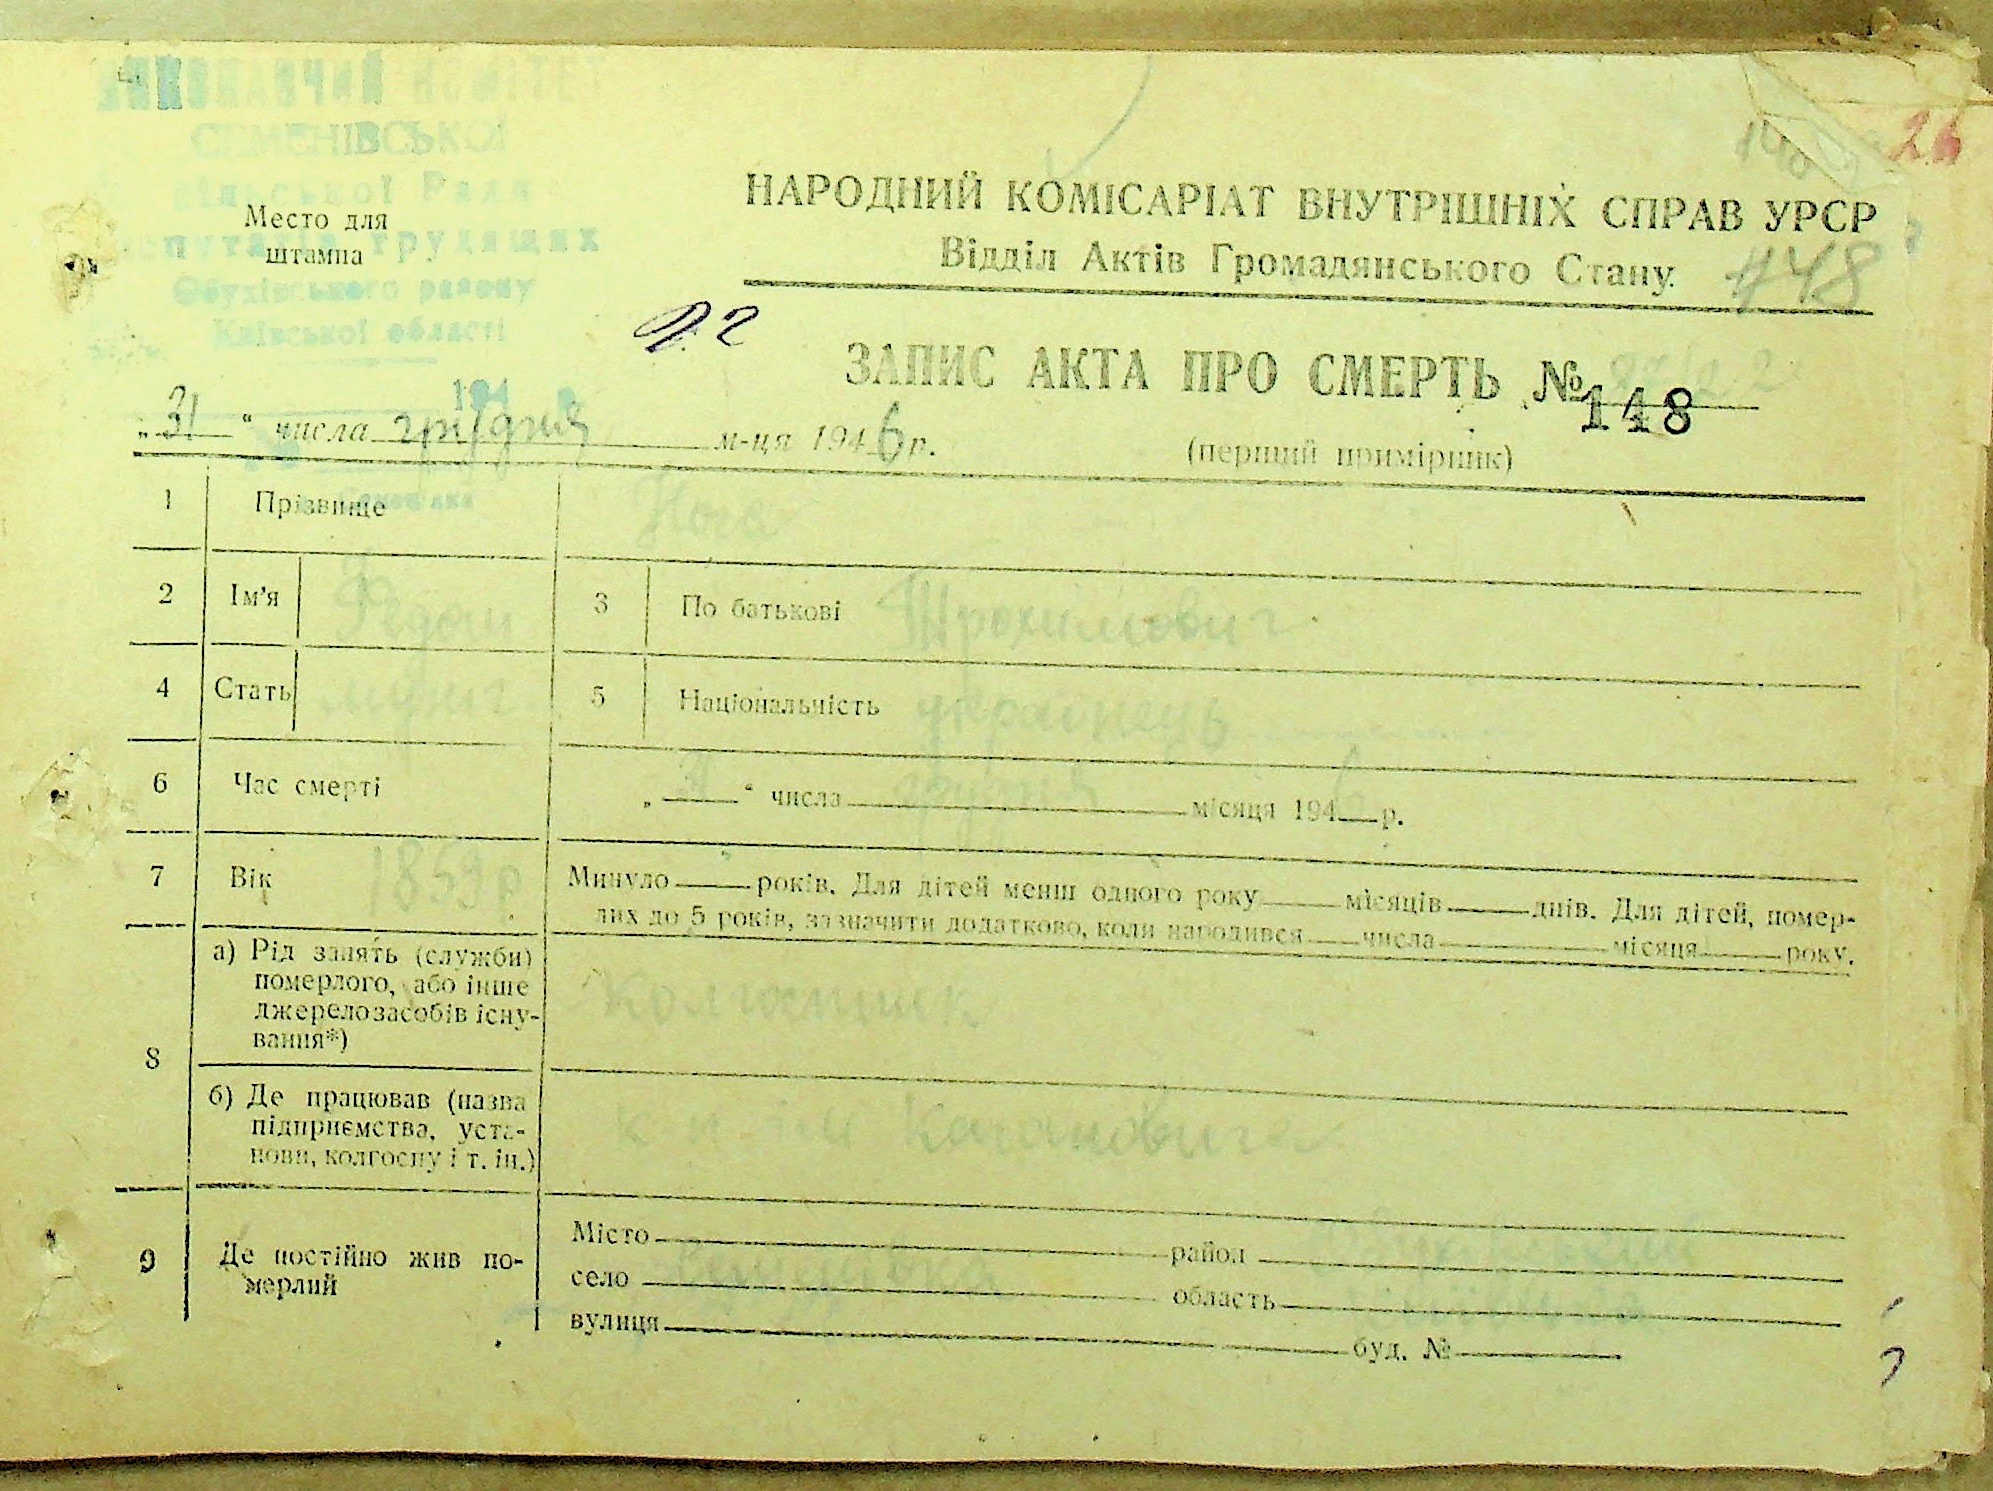 ВИКОНАВЧИЙ КОМІТЕТ
СЕМЕНІВСЬКОЇ
сільської Ради
Место для
депутатів трудящих
штампа
Обухівського району
Київської області
194 р.
26
НАРОДНИЙ КОМІСАРІАТ ВНУТРІШНІХ СПРАВ УРСР
Відділ Актів Громадянського Стану.
148
ЗАПИС АКТА ПРО СМЕРТЬ № 148
„31“ числа грудня м-ця 1946 р.
(перший примірник)
1 Прізвище Нога
2 Ім'я Федот 3 По батькові Трохимович
4 Стать муж 5 Національність українець
6 Час смерті „ “ числа грудня місяця 1946 р.
7 Вік 1859 р Минуло років. Для дітей менш одного року місяців днів. Для дітей, помер-
лих до 5 років, зазначити додатково, коли народився числа місяця року.
8 а) Рід занять (служби) померлого, або інше джерело засобів існу-
вання*) Колгоспник
б) Де працював (назва підприємства, уста-
нови, колгоспу і т. ін.) к п ім Кагановича
9 Де постійно жив по-
мерлий
Місто район
село область
вулиця буд. №